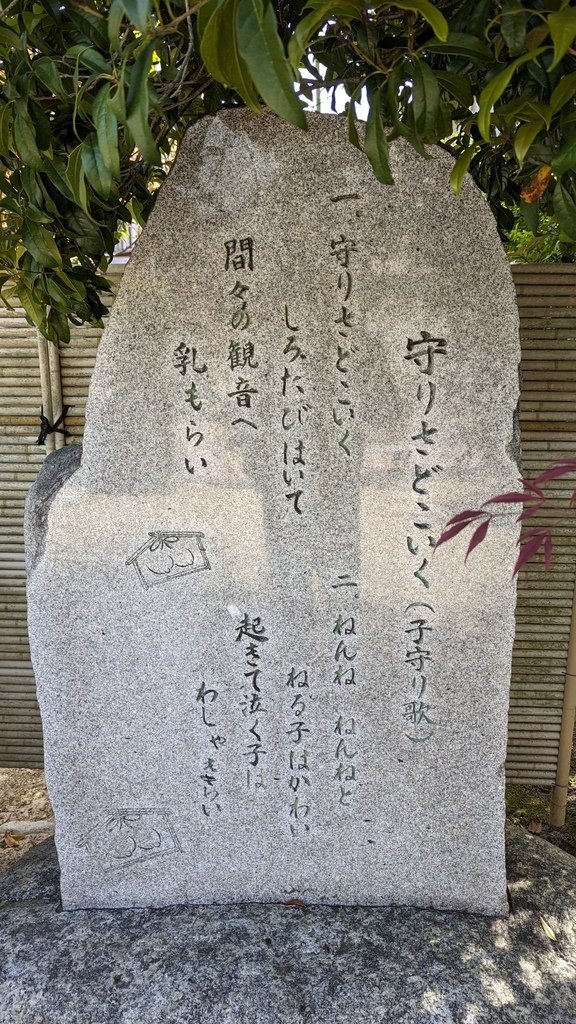 守りさどこいく(子守り歌)
一、守りさどこいく
しろたびはいて
間々の観音へ
乳もらい
二、ねんね ねんねと
ねる子はかわい
起きて泣く子は
わしゃきらい